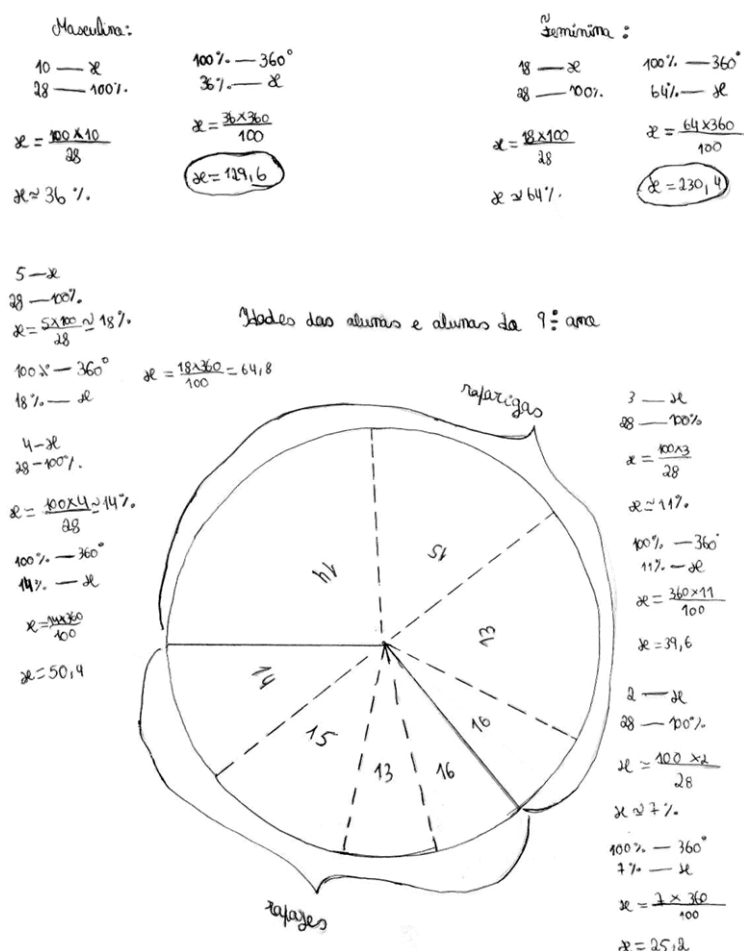 Masculino:
10 — x
28 — 100%
x = 100 x 10 / 28
x ≈ 36 %
100% — 360°
36% — x
x = 36 x 360 / 100
x = 129,6
Feminina :
18 — x
28 — 100%
x = 18 x 100 / 28
x ≈ 64%
100% — 360°
64% — x
x = 64 x 360 / 100
x = 230,4
5 — x
28 — 100%
x = 5 x 100 / 28 ≈ 18%
100% — 360°
18% — x
x = 18 x 360 / 100 = 64,8
4 - x
28 - 100%
x = 100 x 4 / 28 ≈ 14%
100% — 360°
14% — x
x = 14 x 360 / 100
x = 50,4
Idades dos alunos e alunas do 9º ano
raparigas
14
15
13
16
14
15
13
16
rapazes
3 — x
28 — 100%
x = 100 x 3 / 28
x ≈ 11%
100% — 360°
11% — x
x = 360 x 11 / 100
x = 39,6
2 — x
28 — 100%
x = 100 x 2 / 28
x ≈ 7%
100% — 360°
7% — x
x = 7 x 360 / 100
x = 25,2